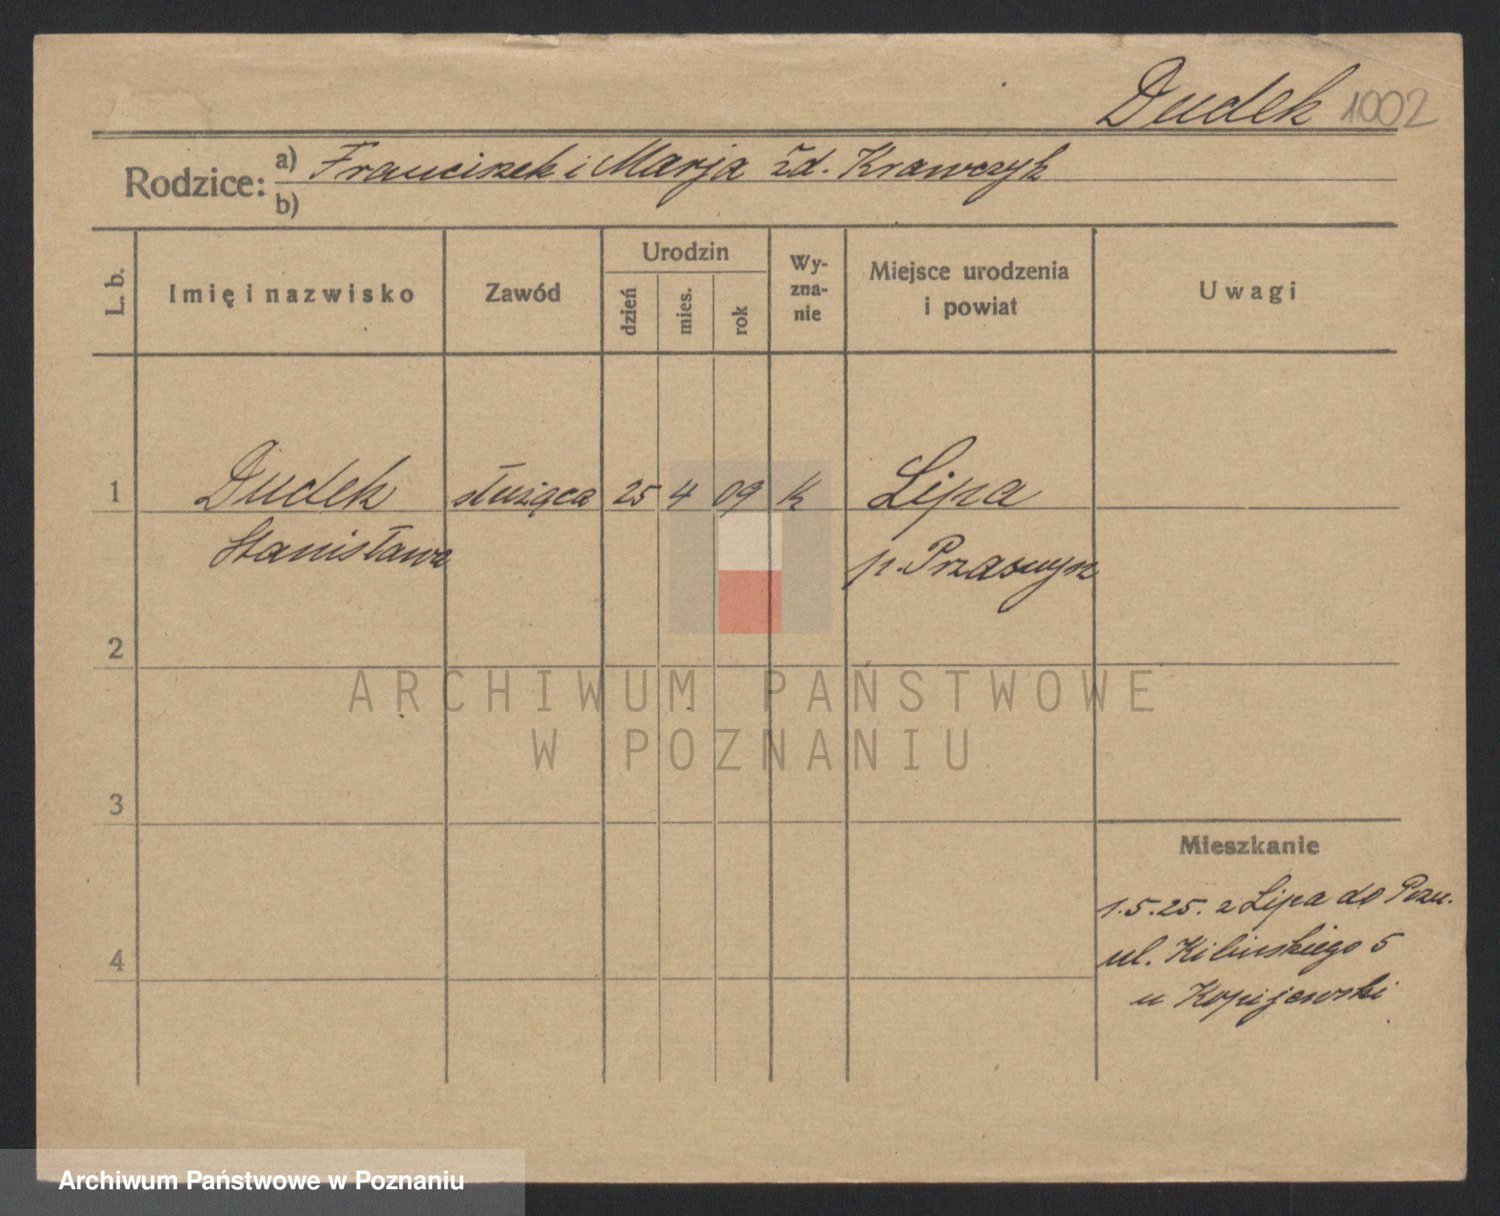 Dudek 1002
Rodzice: a) Franciszek i Marja zd. Krawczyk
b)
L. b.
Imię i nazwisko
Zawód
Urodzin
dzień
mies.
rok
Wy-
zna-
nie
Miejsce urodzenia
i powiat
Uwagi
1 Dudek służąca 25 4 09 k Lipa
Stanisława p. Przasnysz
2
ARCHIWUM PAŃSTWOWE
W POZNANIU
3
Mieszkanie
1.5.25. z Lipa do Pozn.
4 ul. Kilinskiego 5
u Kopijewski
Archiwum Państwowe w Poznaniu